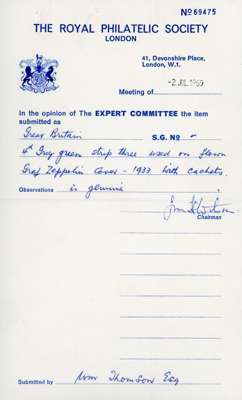 No 69475
THE ROYAL PHILATELIC SOCIETY
LONDON
41, Devonshire Place,
London, W.1.
-2 JUL 1969
Meeting of
In the opinion of The EXPERT COMMITTEE the item
submitted as
Great Britain S.G. No -
4d Grey green strip three used on flown
Graf Zeppelin Cover - 1933 with cachets.
Observations is genuine
Chairman
Submitted by Wm Thomson Esq